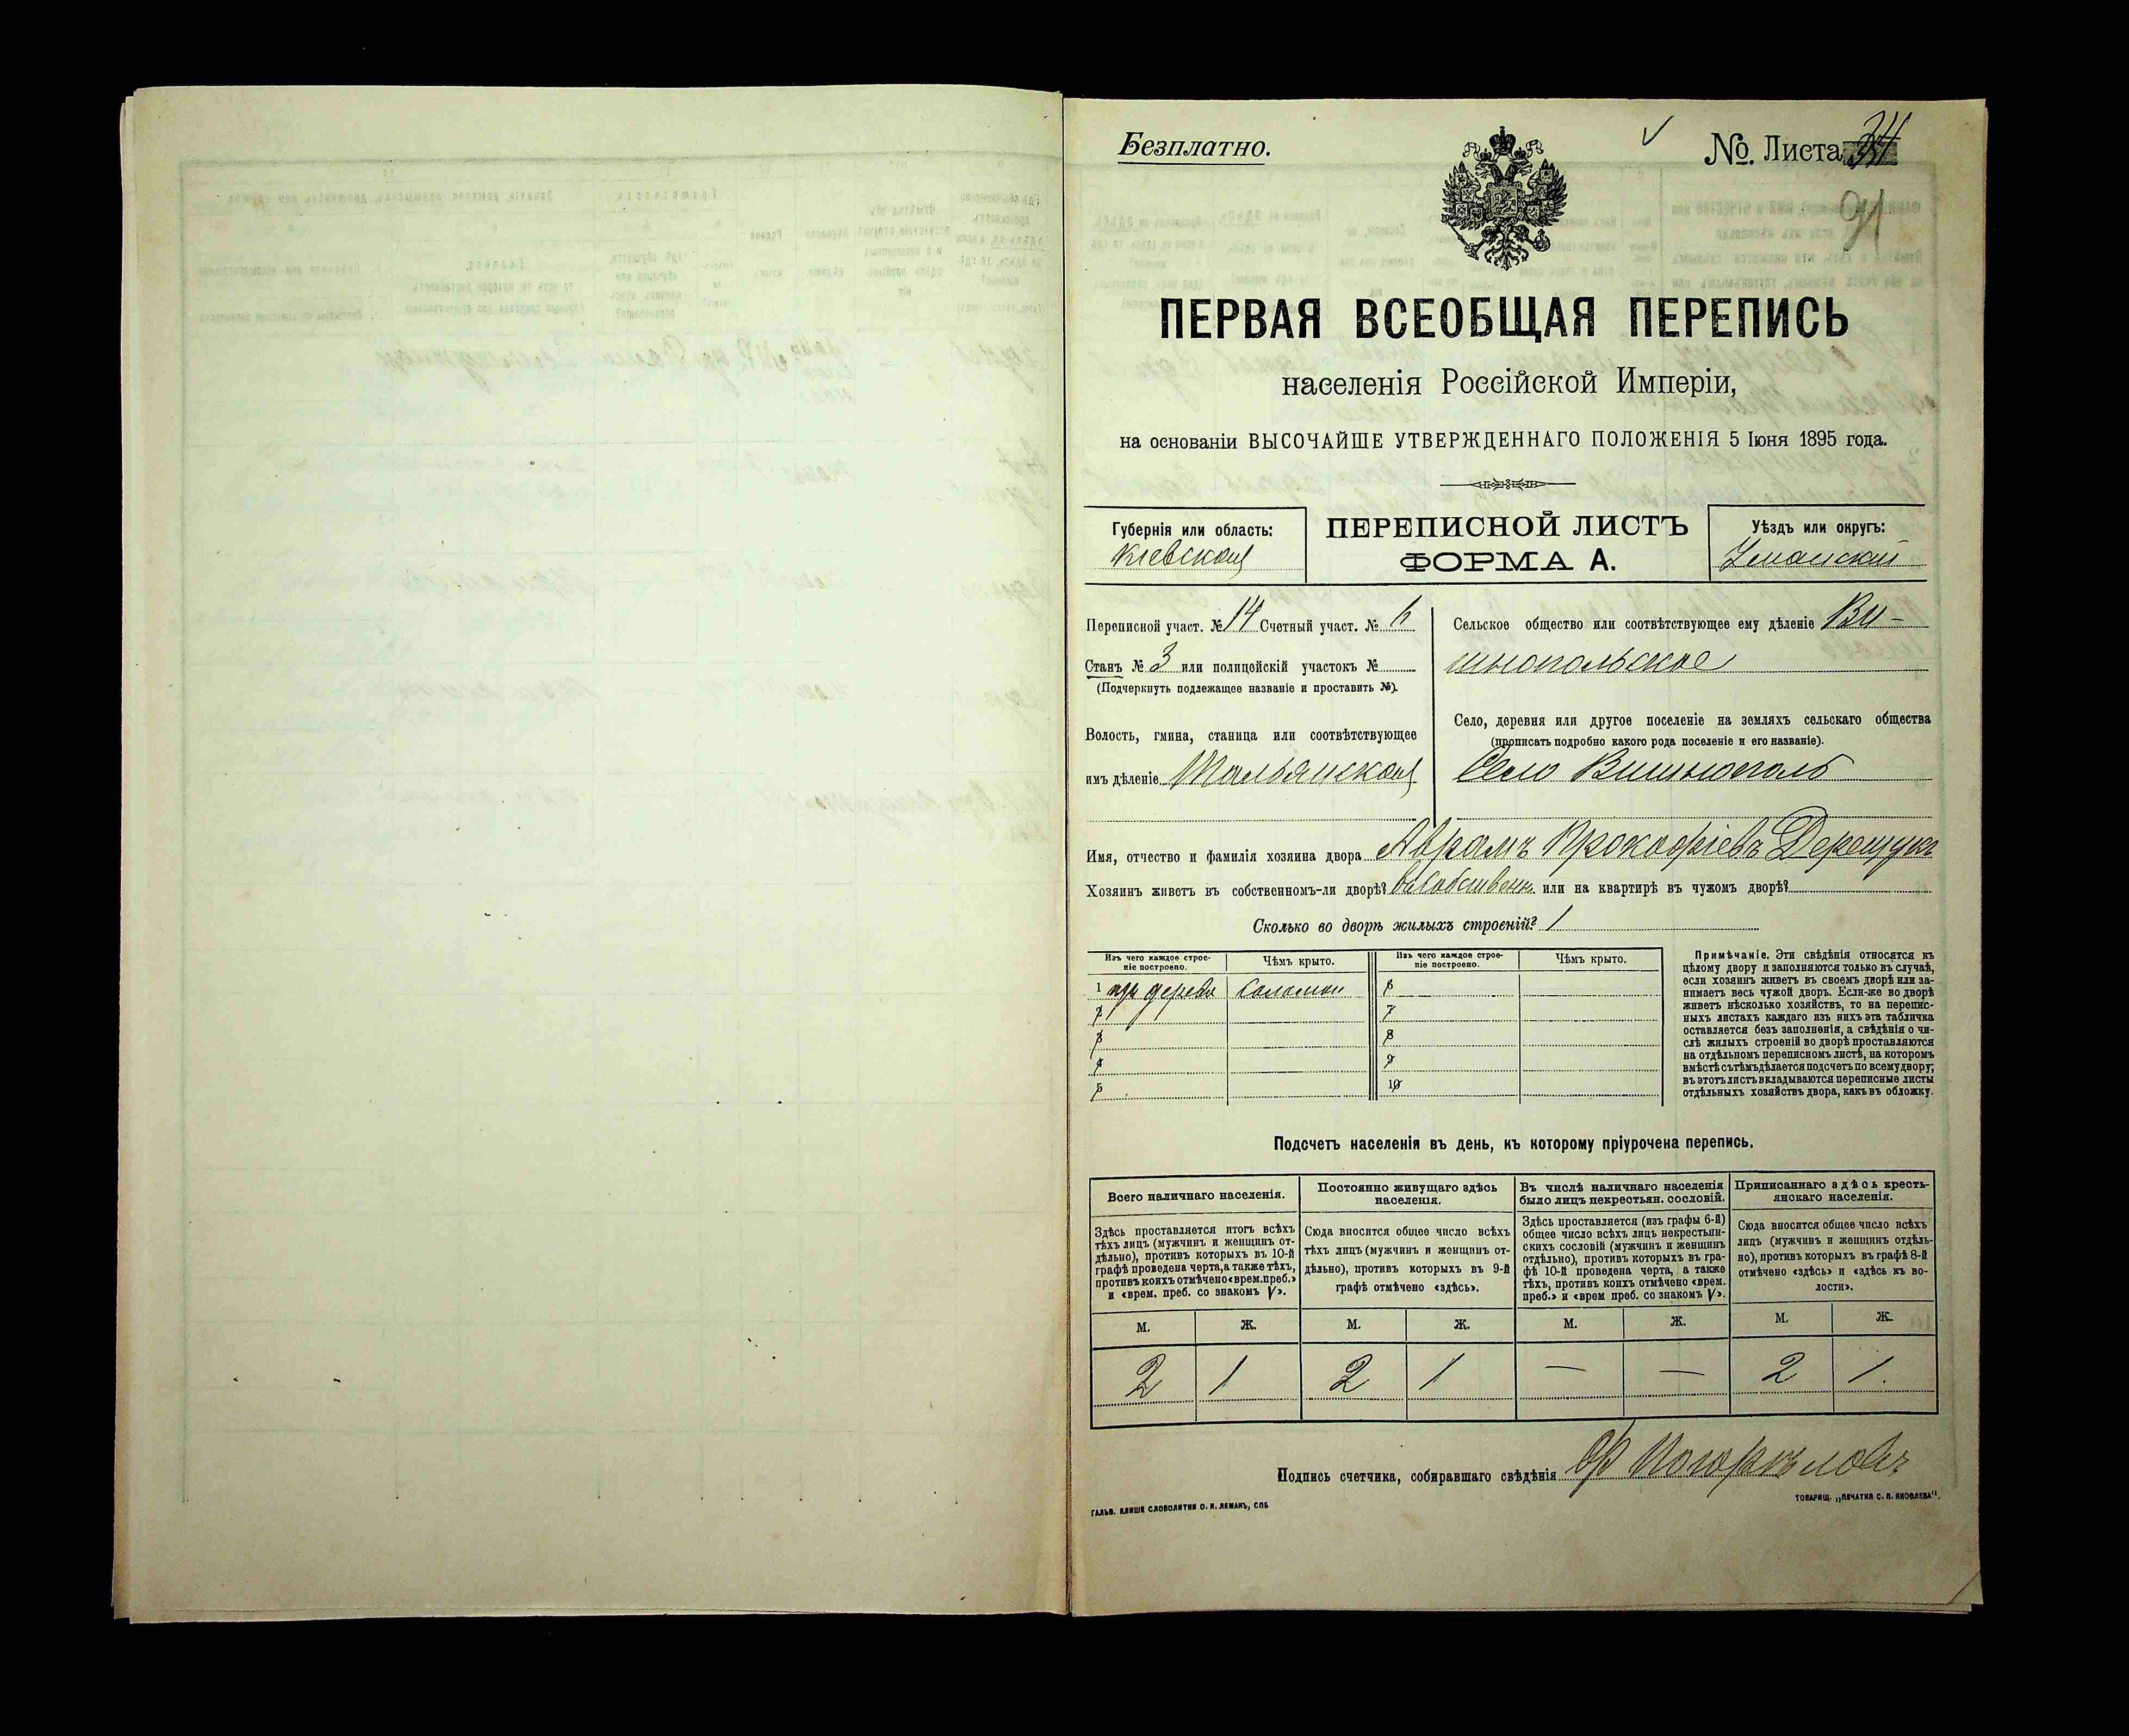 Безплатно.
№. Листа 34
91
ПЕРВАЯ ВСЕОБЩАЯ ПЕРЕПИСЬ
населенія Россійской Имперіи,
на основаніи ВЫСОЧАЙШЕ УТВЕРЖДЕННАГО ПОЛОЖЕНІЯ 5 Іюня 1895 года.
Губернія или область:
Кіевская
ПЕРЕПИСНОЙ ЛИСТЪ
ФОРМА А.
Уѣздъ или округъ:
Уманскій
Переписной участ. № 14 Счетный участ. № 6
Станъ № 3 или полицейскій участокъ №
(Подчеркнуть подлежащее названіе и проставить №).
Волость, гмина, станица или соотвѣтствующее
имъ дѣленіе Тальянская
Сельское общество или соотвѣтствующее ему дѣленіе Ви-
шнопольское
Село, деревня или другое поселеніе на земляхъ сельскаго общества
(прописать подробно какого рода поселеніе и его названіе).
Село Вишнополь
Имя, отчество и фамилія хозяина двора Аврамъ Прокофіевъ Дерещукъ
Хозяинъ живетъ въ собственномъ-ли дворѣ? въ собственн. или на квартирѣ въ чужомъ дворѣ?
Сколько во дворѣ жилыхъ строеній? 1
Изъ чего каждое строе-
ніе построено.
Чѣмъ крыто.
Изъ чего каждое строе-
ніе построено.
Чѣмъ крыто.
1 изъ дерева соломой 6
2 7
3 8
4 9
5 10
Примѣчаніе. Эти свѣдѣнія относятся къ
цѣлому двору и заполняются только въ случаѣ,
если хозяинъ живетъ въ своемъ дворѣ или за-
нимаетъ весь чужой дворъ. Если-же во дворѣ
живетъ нѣсколько хозяйствъ, то на перепис-
ныхъ листахъ каждаго изъ нихъ эта табличка
оставляется безъ заполненія, а свѣдѣнія о чи-
слѣ жилыхъ строеній во дворѣ проставляются
на отдѣльномъ переписномъ листѣ, на которомъ
вмѣстѣ съ тѣмъ дѣлается подсчетъ по всему двору;
въ этотъ листъ вкладываются переписные листы
отдѣльныхъ хозяйствъ двора, какъ въ обложку.
Подсчетъ населенія въ день, къ которому пріурочена перепись.
Всего наличнаго населенія.
Здѣсь проставляется итогъ всѣхъ
тѣхъ лицъ (мужчинъ и женщинъ от-
дѣльно), противъ которыхъ въ 10-й
графѣ проведена черта, а также тѣхъ,
противъ коихъ отмѣчено «врем. преб.»
и «врем. преб. со знакомъ V».
Постоянно живущаго здѣсь
населенія.
Сюда вносится общее число всѣхъ
тѣхъ лицъ (мужчинъ и женщинъ от-
дѣльно), противъ которыхъ въ 9-й
графѣ отмѣчено «здѣсь».
Въ числѣ наличнаго населенія
было лицъ некрестьян. сословій.
Здѣсь проставляется (изъ графы 6-й)
общее число всѣхъ лицъ некрестьян-
скихъ сословій (мужчинъ и женщинъ
отдѣльно), противъ которыхъ въ гра-
фѣ 10-й проведена черта, а также
тѣхъ, противъ коихъ отмѣчено «врем.
преб.» и «врем преб. со знакомъ V».
Приписаннаго здѣсь кресть-
янскаго населенія.
Сюда вносится общее число всѣхъ
лицъ (мужчинъ и женщинъ отдѣль-
но), противъ которыхъ въ графѣ 8-й
отмѣчено «здѣсь» и «здѣсь къ во-
лости».
М. Ж. М. Ж. М. Ж. М. Ж.
2 1 2 1 — — 2 1.
Подпись счетчика, собиравшаго свѣдѣнія Погорѣловъ
ГАЛЬВ. КЛИШЕ СЛОВОЛИТНИ О. И. ЛЕМАНЪ, СПБ
ТОВАРИЩ. „ПЕЧАТНЯ С. П. ЯКОВЛЕВА".